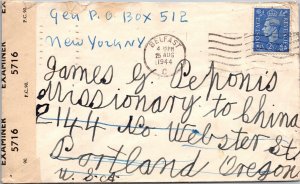 Gen P.O BOX 512
New York NY
BELFAST
4 PM
15 AUG
1944
James G. Peponis
Missionary to China
144 No. Webster St
Portland Oregon
U.S.A
P.C. 90.
EXAMINER 5716
P.C. 90.
EXAMINER 5716